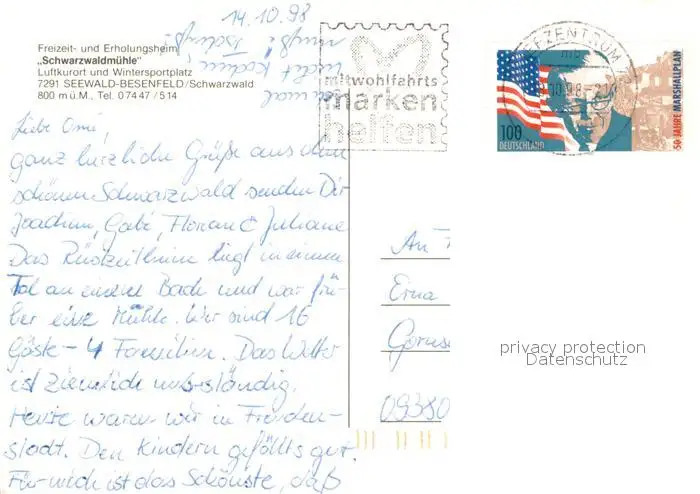 14.10.98
Freizeit- und Erholungsheim
„Schwarzwaldmühle"
Luftkurort und Wintersportplatz
7291 SEEWALD-BESENFELD/Schwarzwald
800 m ü.M., Tel. 07447/514
Liebe Omi,
ganz herzliche Grüße aus dem
schönen Schwarzwald senden Dir
Joachim, Gabi, Florian & Juliane
Das Rüstzeitheim liegt in einem
Tal an einem Bach und war frü-
her eine Mühle. Wir sind 16
Gäste - 4 Familien. Das Wetter
ist ziemlich unbeständig.
Heute waren wir in Freuden-
stadt. Den Kindern gefällts gut.
Für mich ist das Schönste, daß
nicht kochen
muß! Tschüß
mit wohlfahrts
marken
helfen
BRIEFZENTRUM
100
DEUTSCHLAND
50 JAHRE MARSHALLPLAN
An
Erna
09380
privacy protection
Datenschutz